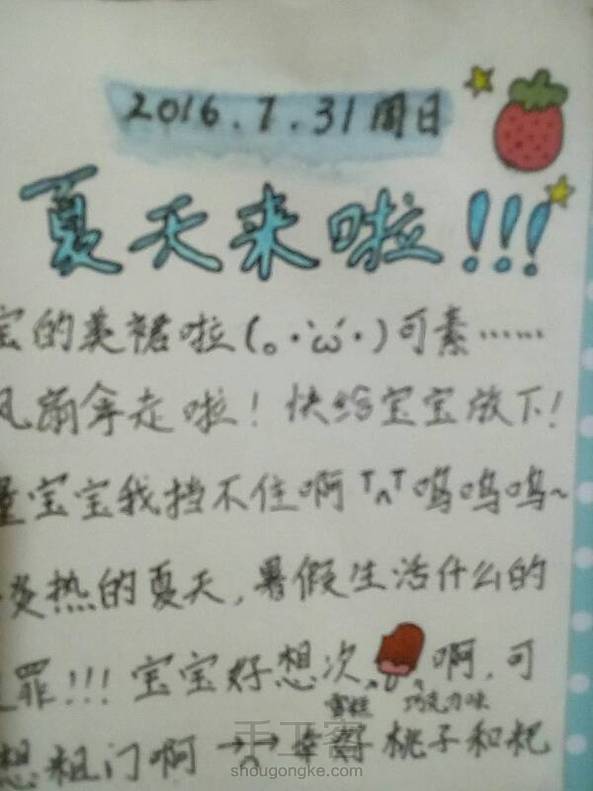 2016.7.31周日
夏天来啦!!!
宝的美裙啦(。･`ω´･)可素……
风扇拿走啦!快给宝宝放下!
量宝宝我挡不住啊T^T呜呜呜~
炎热的夏天,暑假生活什么的
罪!!!宝宝好想次 啊,可
雪糕 巧克力味
想粗门啊 →^← 幸好桃子和杷
手工客
shougongke.com